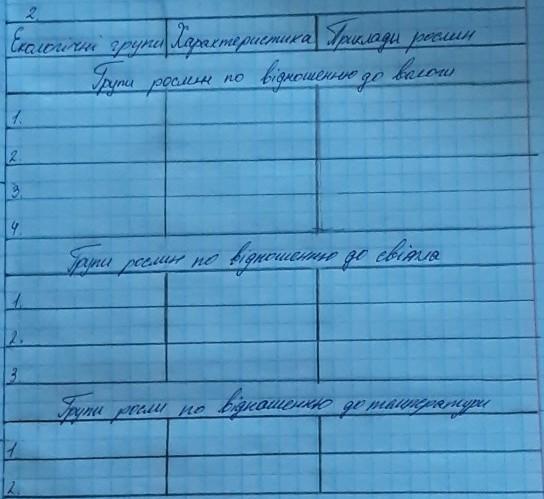 2
Екологічні групи Характеристика Приклади рослин
Групи рослин по відношенню до вологи
1.
2.
3.
4.
Групи рослин по відношенню до світла
1.
2.
3
Групи росли по відношенню до температури
1
2.